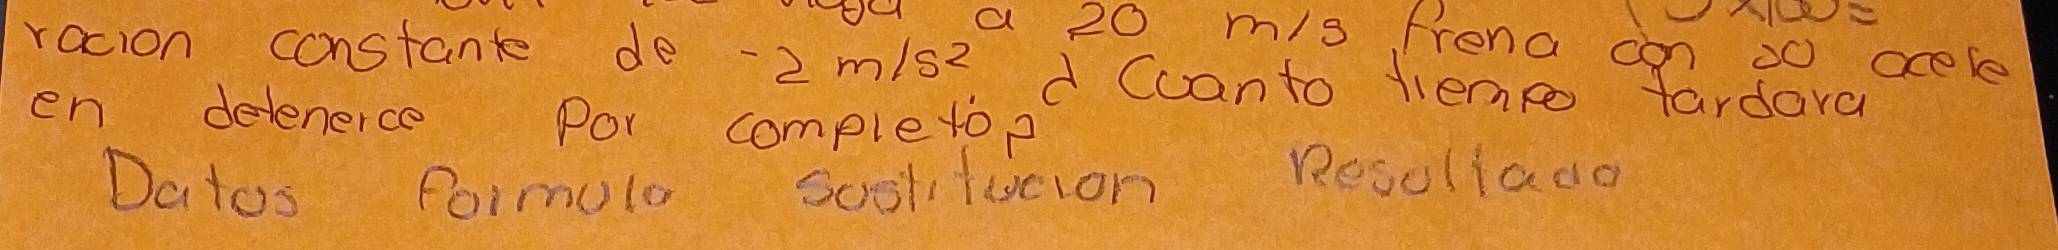 a 20 m/s frena con 20 acele
racion constante de -2 m/s2. ¿ Cuanto tiempo tardara
en detenerce por completo?
Datos Formula Sustitucion Resultado